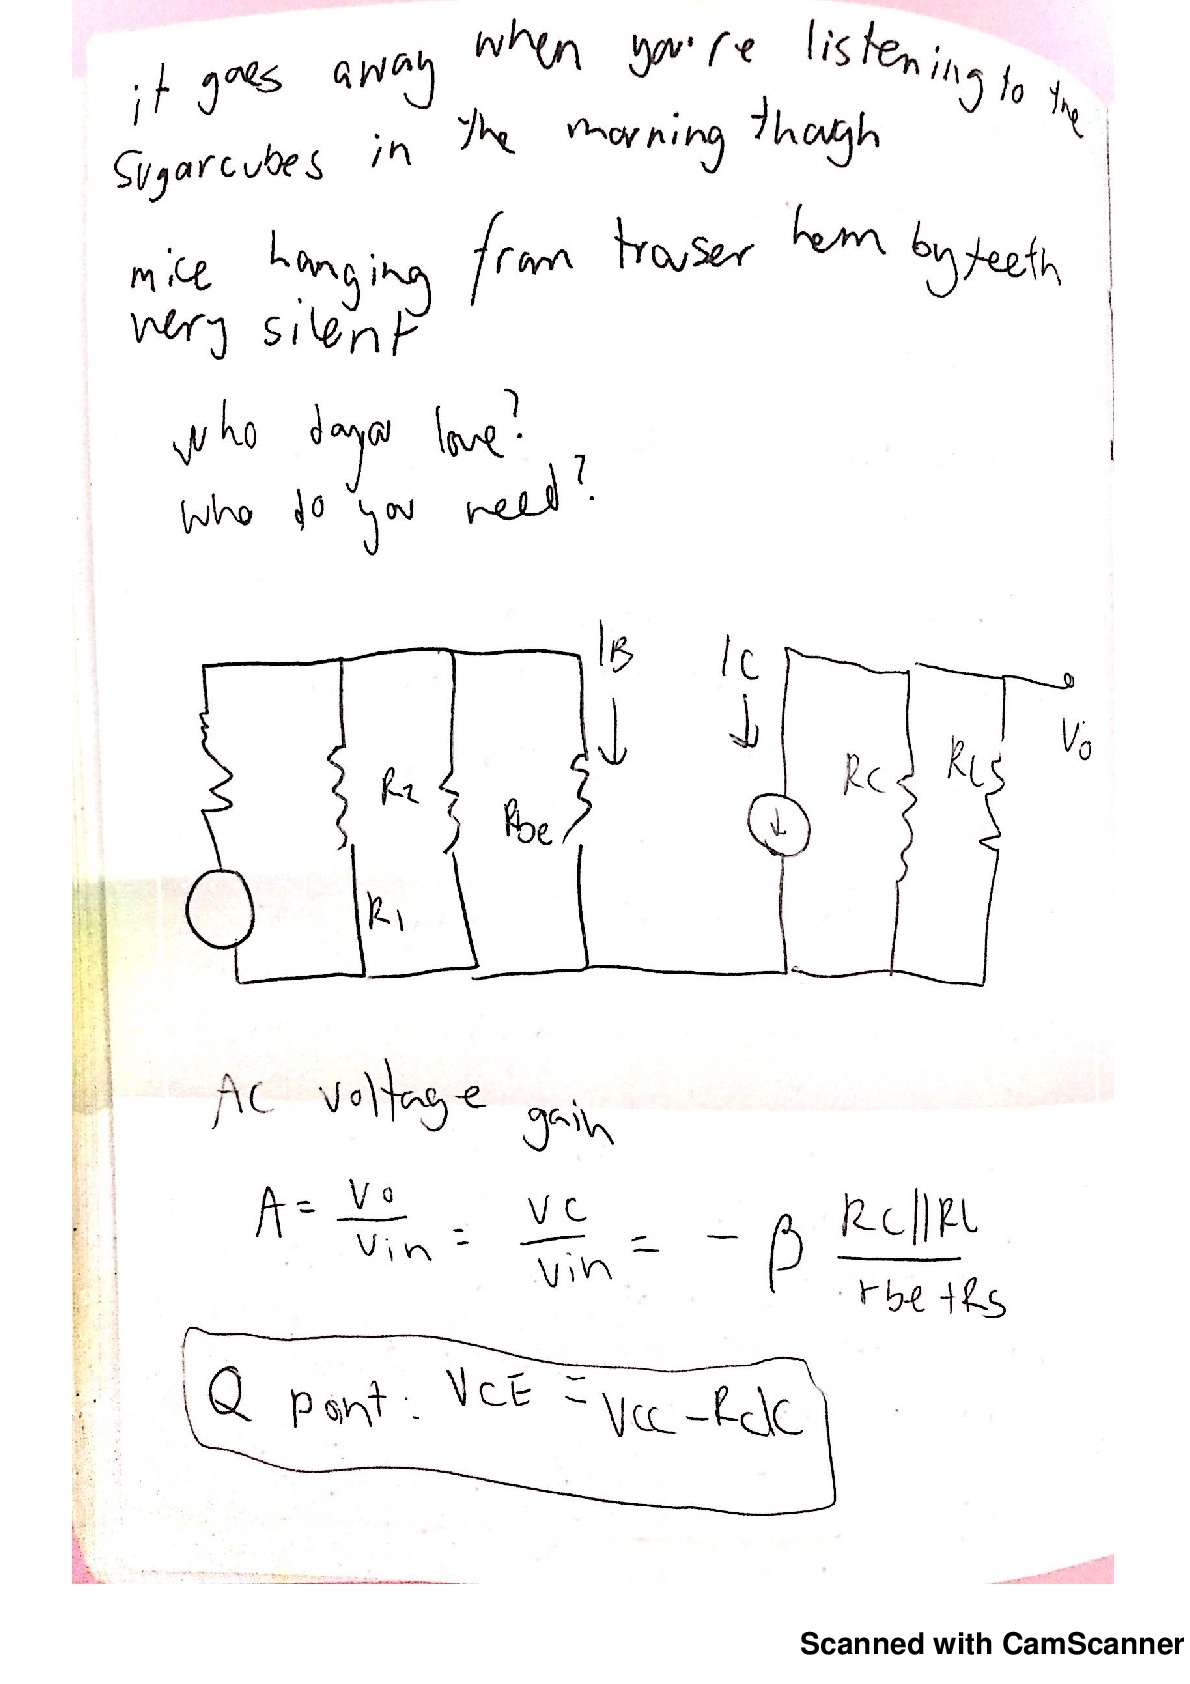 it goes away when you're listening to the
Sugarcubes in the morning though
mice hanging from trouser hem by teeth
very silent
who do you love?
who do you need?
IB IC
Vo
R2 Rbe RC RLS
R1
AC voltage gain
A = Vo/Vin = VC/Vin = - β RC||RL/rbe+RS
Q point: VCE = VCC - RcIC
Scanned with CamScanner